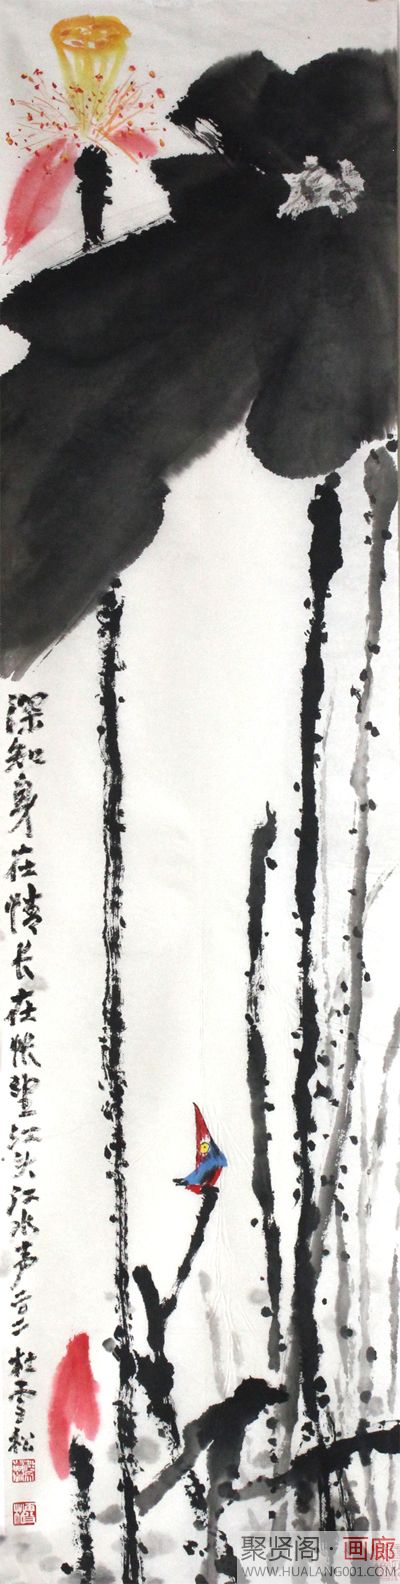 深知身在情长在怅望江头江水声 杜雪松
聚贤阁·画廊
WWW.HUALANG001.COM